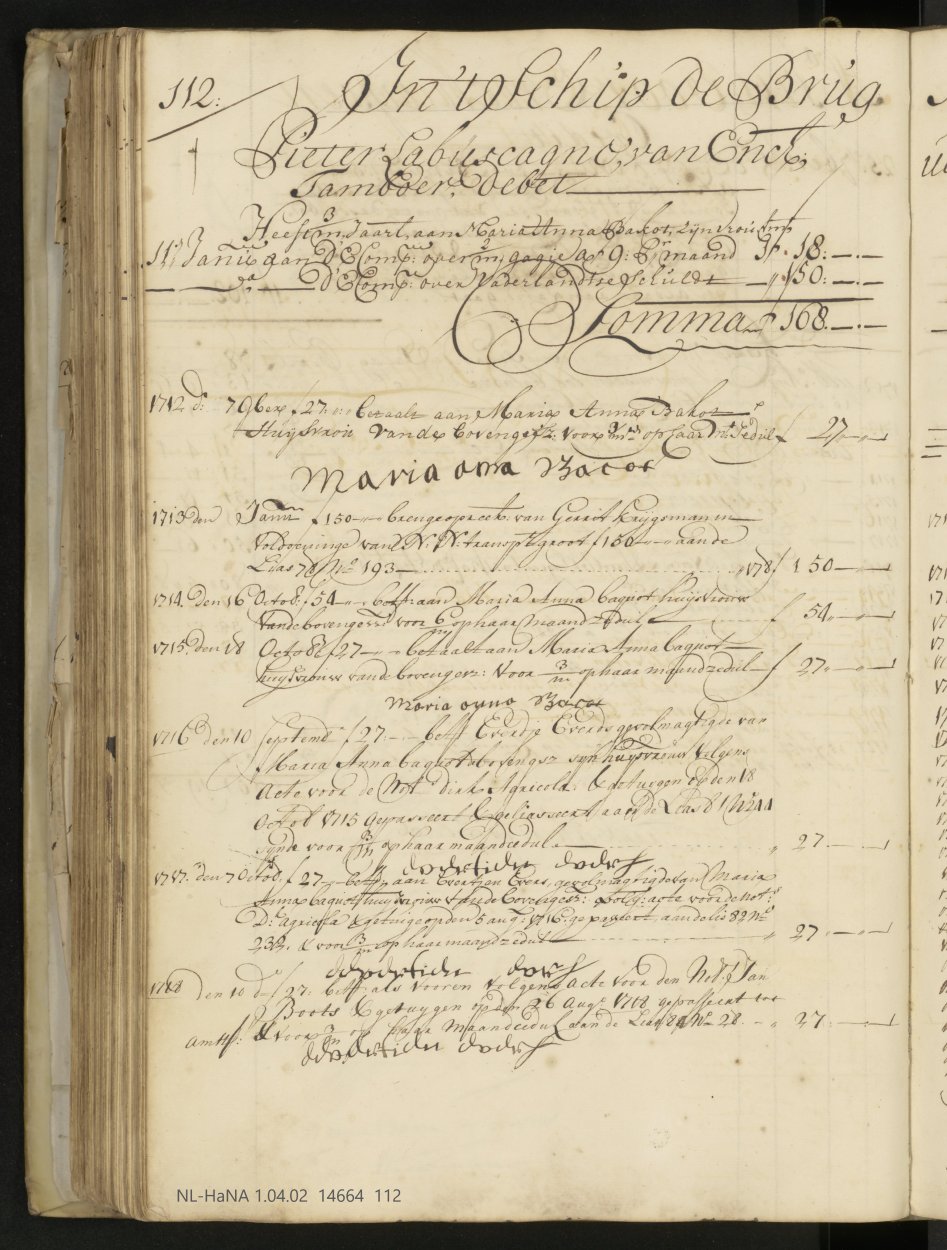 112:
In 't Schip de Brug
Pieter Labuscagne, van Enck:
Tamboer. Debet
Heeft 3/m Jaarl: aan Maria Anna Bakot, zyn vrou
11: Januij aan D'E Comp: over 2/m gagie a ƒ 9: Pr maand ƒ 18:—.—
— da — D'E Comp: over Vaderlandtse Schuldt — " 150:—.—
Somma ƒ 168.—.—
1712 d: 7 9ber ƒ 27:"— betaalt aan Maria Anna Bakot
Huijsvrou vande bovenge: voor 3/m op haar Mt Cedul ƒ 27"—"—
Maria ana Bacot
1713 den Januij ƒ 150—"— brenge op reek: van Gerrit Krijgsman in
voldoeninge van N: N: transpt groot ƒ 150—"— aande
Lias 70 No 193 — 178 ƒ 150—"—
1714 den 16 Octob: ƒ 54—"— betlt aan Maria Anna baquot huijsvrouw
vande bovengesz: voor 6/m op haar maandzedul ƒ 54"—"—
1715: den 18 Octob: ƒ 27—"— betaalt aan Maria Anna baquot
huijsvrouw vande bovengesz: voor 3/m op haar maandzedul ƒ 27"—"—
Maria anna Bacot
1716 den 10 septemb ƒ 27.—.— betlt Evertje Everds gevolmagtigde van
Maria Anna baquot des bovengesz syn huijsvrouw volgens
Acte voor de Nott Dirk Agricola: & getuijgen op den 18
Octob 1715 gepasseert & geliasseert aan de Lias 81 No 244
zynde voor 3/m op haar maandcedul " 27—"—
Evertien Everts
1717: den 7 Octob: ƒ 27—"— betlt aan Evertjen Evers, gevolmagtigde van Maria
Anna baquot huijsvrouw vande bovengesz: volg: acte voor de not:
D: Agricola & getuige op den 5 aug: 1716 gepasseert, aan de lias 82 No
232. & voor 3/m op haar maandzedul " 27—"—
Evertien Everts
1718 den 10 do ƒ 27: betlt als vooren volgens Acte voor den Not: Jan
Boots & getuygen op den 26 Augt 1718 gepasseert tot
Amst: & voor 3/m op haar Maandcedul aan de Lias 84 No 28 — " 27.—"—
Evertien Everts
NL-HaNA 1.04.02 14664 112